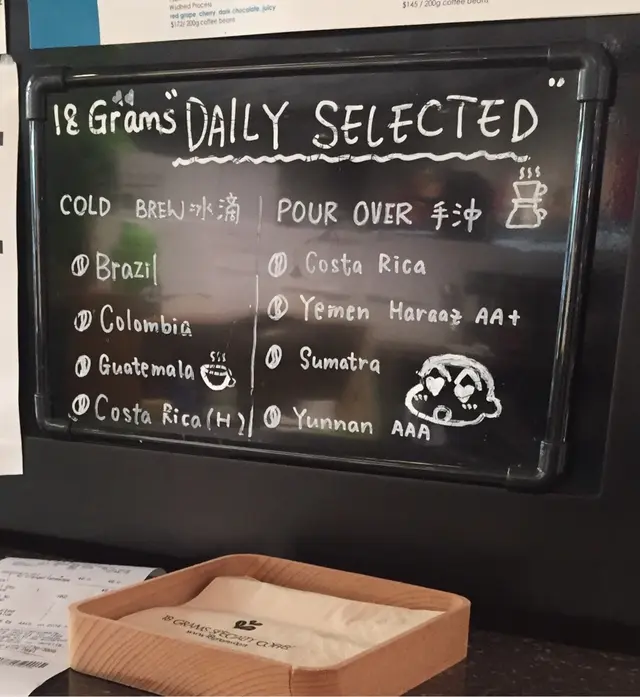 Washed Process
red grape, cherry, dark chocolate, juicy
$172/200g coffee beans
$145 / 200g coffee beans
18 Grams" DAILY SELECTED "
COLD BREW 冰滴
Brazil
Colombia
Guatemala
Costa Rica (H)
POUR OVER 手沖
Costa Rica
Yemen Haraaz AA+
Sumatra
Yunnan AAA
18 GRAMS SPECIALTY COFFEE